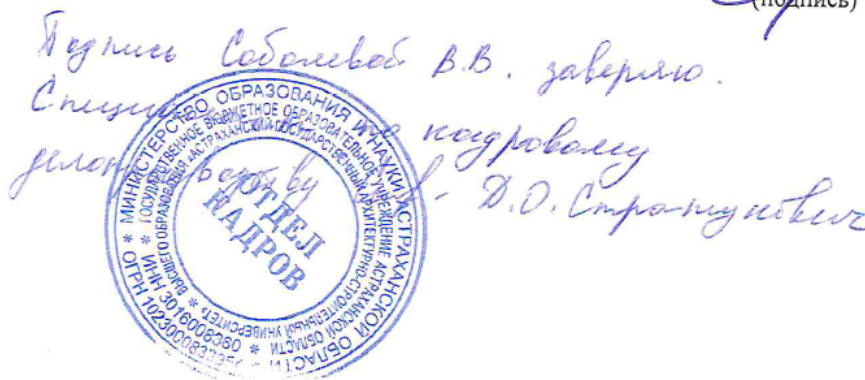 (подпись)
Подпись Соболевой В.В. заверяю.
Специалист по кадровому
делопроизводству Д.О. Стратунович
* МИНИСТЕРСТВО ОБРАЗОВАНИЯ И НАУКИ АСТРАХАНСКОЙ ОБЛАСТИ
* ГОСУДАРСТВЕННОЕ БЮДЖЕТНОЕ ОБРАЗОВАТЕЛЬНОЕ УЧРЕЖДЕНИЕ АСТРАХАНСКОЙ ОБЛАСТИ
ВЫСШЕГО ОБРАЗОВАНИЯ «АСТРАХАНСКИЙ ГОСУДАРСТВЕННЫЙ АРХИТЕКТУРНО-СТРОИТЕЛЬНЫЙ УНИВЕРСИТЕТ» *
* ИНН 3016008360 *
ОГРН
ОТДЕЛ
КАДРОВ